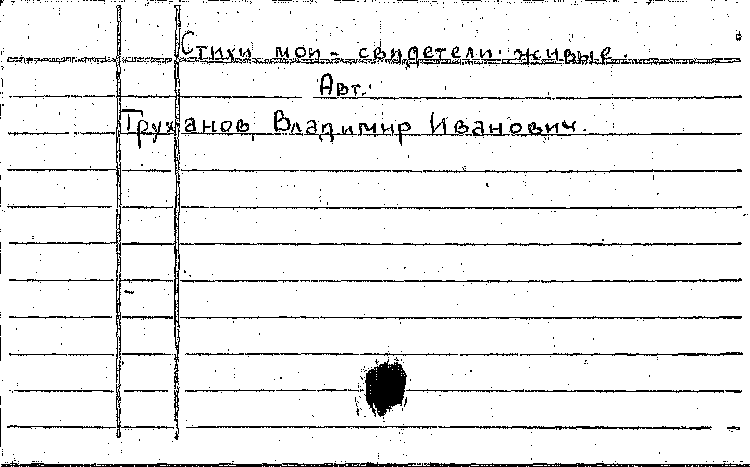 Стихи мои - свидетели живые.
Авт.:
Труханов, Владимир Иванович.